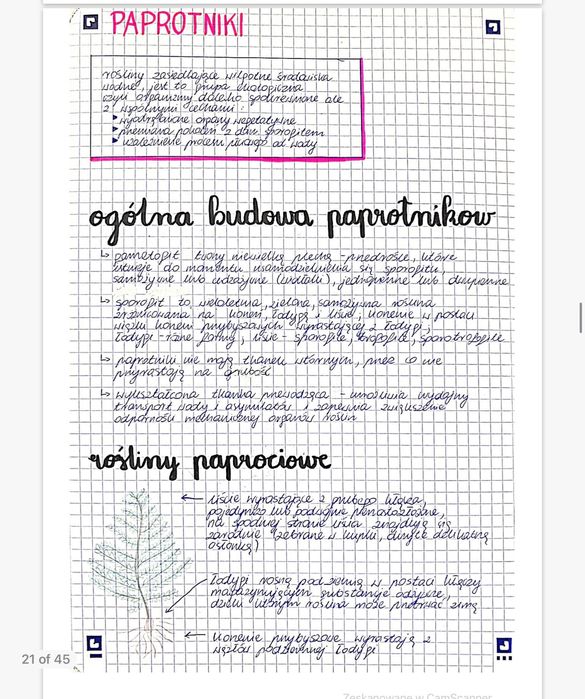 PAPROTNIKI
rośliny zasiedlające wilgotne środowiska
wodne, jest to grupa ekologiczna
czyli organizmy daleko spokrewnione ale
z wspólnymi cechami:
▸ wyodrębnione organy wegetatywne
▸ przemiana pokoleń z dom. sporofitem
▸ uzależnienie procesu płciowego od wody
ogólna budowa paprotników
↳ gametofit tworzy niewielką plechę - przedrośle, które
istnieje do momentu usamodzielnienia się sporofitu,
samożywne lub cudzożywne (widłaki), jednopienne lub dwupienne
↳ sporofit to wieloletnia, zielona, samożywna roślina
zróżnicowana na korzeń, łodygę i liście, korzenie w postaci
wiązki korzeni przybyszowych wyrastającej z łodygi,
łodygi - różne formy, liście - sporofile, trofofile, sporotrofofile
↳ paprotniki nie mają tkanek wtórnych, przez co nie
przyrastają na grubość
↳ wykształcona tkanka przewodząca - umożliwia wydajny
transport wody i asymilatów i zapewnia zwiększenie
odporności mechanicznej organów roślin
rośliny paprociowe
liście wyrastające z grubego kłącza,
pojedynczo lub podwójnie pierzastozłożone,
na spodniej stronie liścia znajdują się
zarodnie (zebrane w kupki, okryte delikatną
osłonką)
łodygi rosną pod ziemią w postaci kłączy
magazynujących substancje odżywcze,
dzięki którym roślina może przetrwać zimę
korzenie przybyszowe wyrastają z
węzłów podziemnej łodygi
21 of 45
Zeskanowane w CamScanner